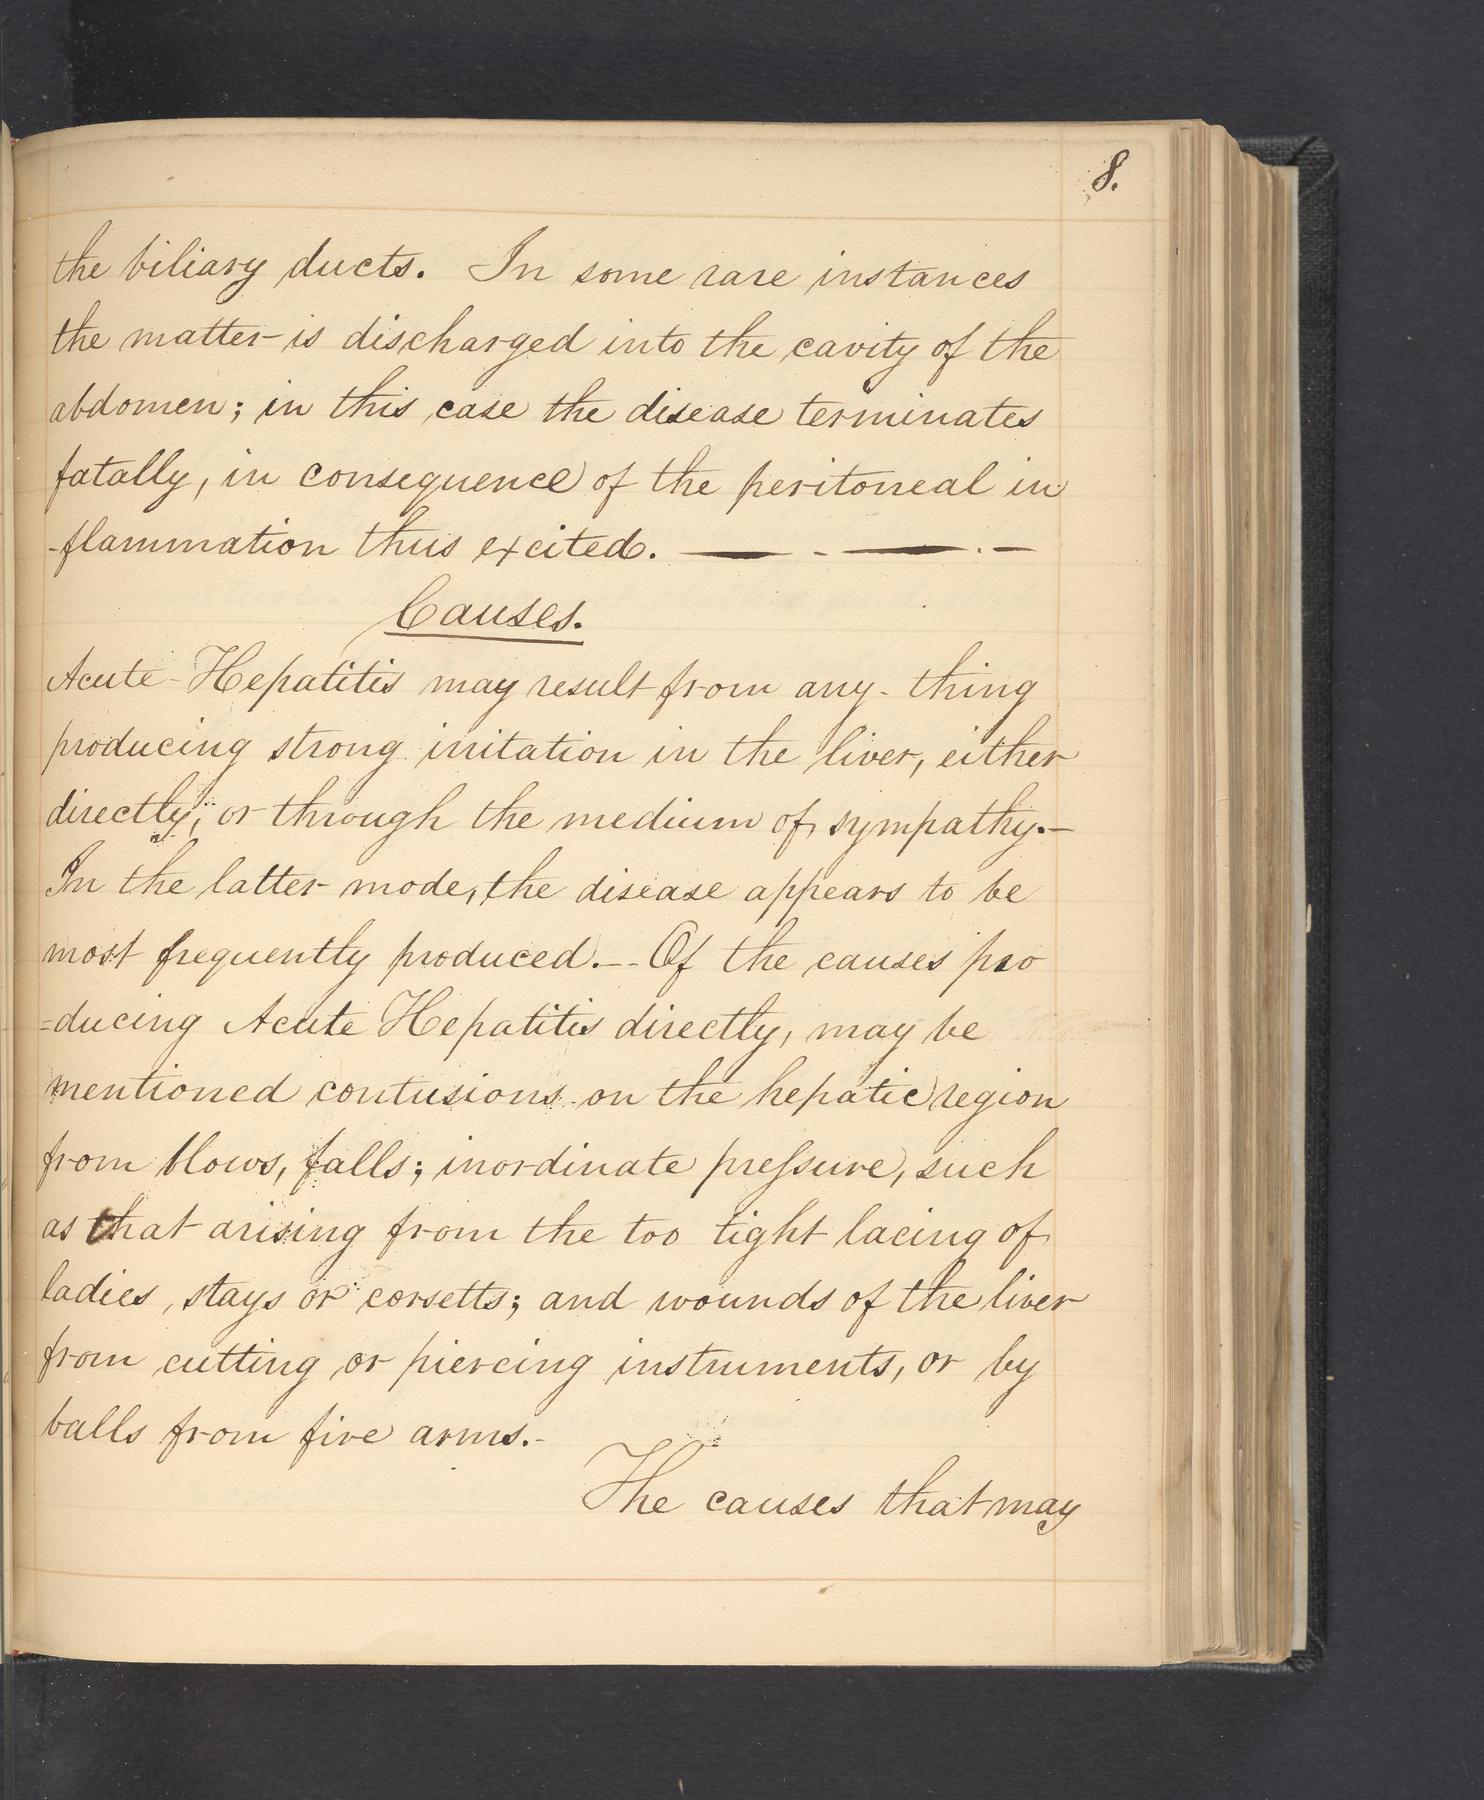 8.
the biliary ducts. In some rare instances
the matter is discharged into the cavity of the
abdomen; in this case the disease terminates
fatally, in consequence of the peritoneal in
-flammation thus excited. — - — . —
Causes.
Acute Hepatitis may result from any-thing
producing strong irritation in the liver, either
directly, or through the medium of sympathy.—
In the latter mode, the disease appears to be
most frequently produced.— Of the causes pro
=ducing Acute Hepatitis directly, may be
mentioned contusions on the hepatic region
from blows, falls; inordinate pressure, such
as that arising from the too tight lacing of
ladies, stays or corsetts; and wounds of the liver
from cutting or piercing instruments, or by
balls from fire arms.-
The causes that may